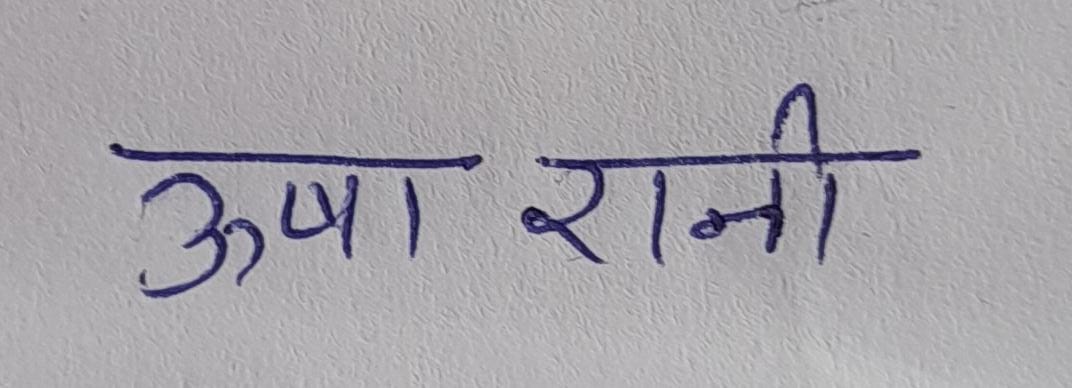 ऊषा रानी